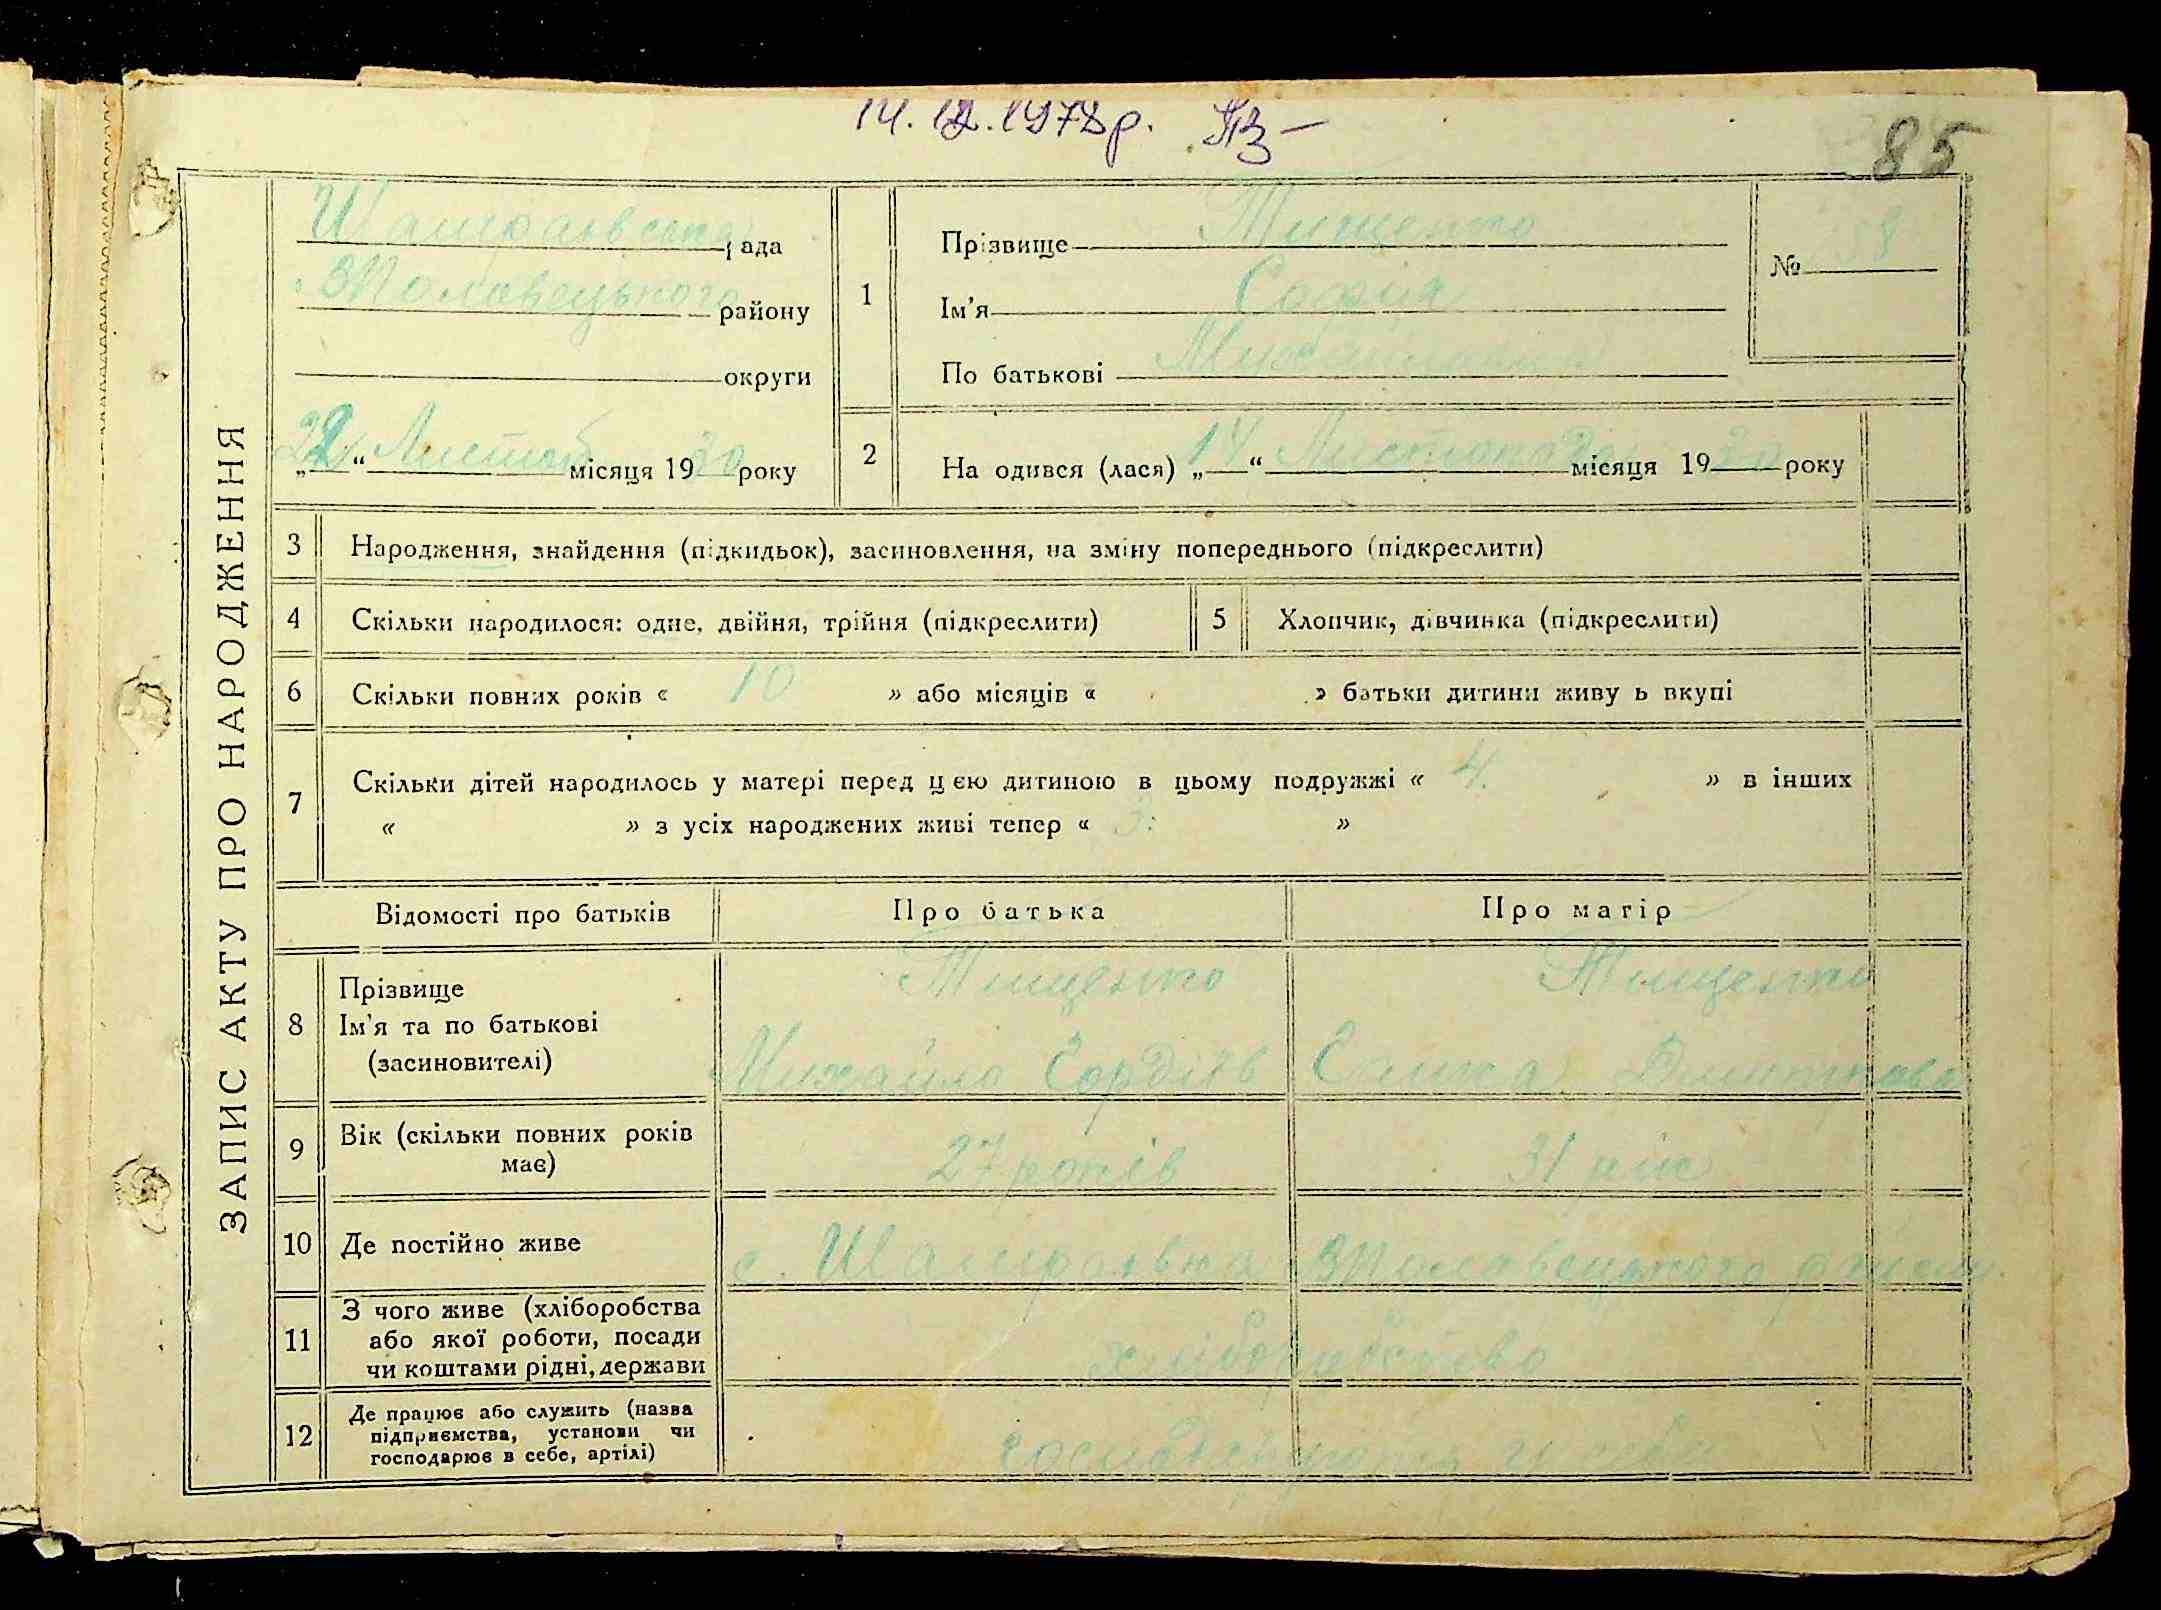 14.12.1978р.
85
ЗАПИС АКТУ ПРО НАРОДЖЕННЯ
Шамраївська рада
району
округи
„22“ Листоп місяця 1930 року
1
Прізвище Тищенко
Ім'я Софія
По батькові Михайлівна
№ 58
2
На одився (лася) „14“ Листопада місяця 1930 року
3 Народження, знайдення (підкидьок), засиновлення, на зміну попереднього (підкреслити)
4 Скільки народилося: одне, двійня, трійня (підкреслити)
5 Хлопчик, дівчинка (підкреслити)
6 Скільки повних років « 10 » або місяців « » батьки дитини живу ь вкупі
7 Скільки дітей народилось у матері перед цією дитиною в цьому подружжі « 4. » в інших
« » з усіх народжених живі тепер « 3: »
Відомості про батьків Про батька Про матір
8 Прізвище Тищенко Тищенко
Ім'я та по батькові Михайло Гордіїв
(засиновителі)
9 Вік (скільки повних років має) 27 років 31 рік
10 Де постійно живе с. Шамраївка
11 З чого живе (хліборобства
або якої роботи, посади
чи коштами рідні, держави хліборобство
12 Де працює або служить (назва
підприємства, установи чи
господарює в себе, артілі)